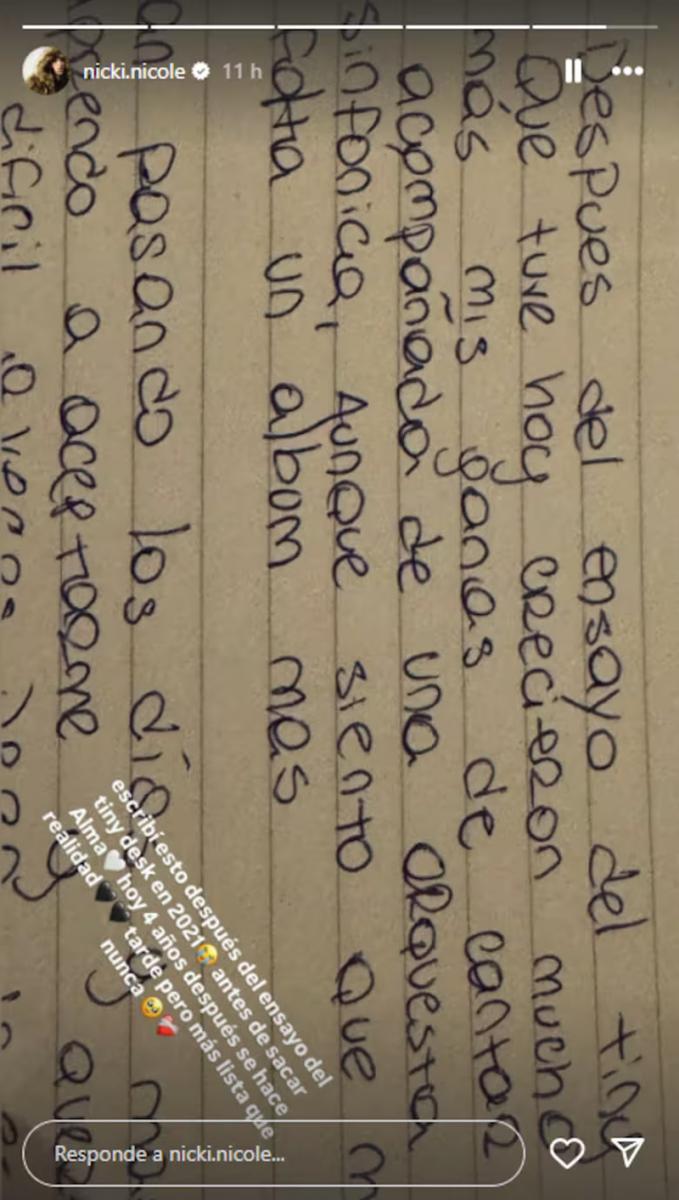 nicki.nicole
11 h
Despues del ensayo del tiny
Que tuve hoy crecieron mucho
más mis ganas de cantar
acompañada de una orquesta
sinfonica, Aunque siento que
falta un album mas
pasando los días y
a aceptarme y que
dificil
escribí esto después del ensayo del
tiny desk en 2021😭 antes de sacar
Alma🤍 hoy 4 años después se hace
realidad🖤🖤 tarde pero más lista que
nunca🥹❤️‍🩹
Responde a nicki.nicole...